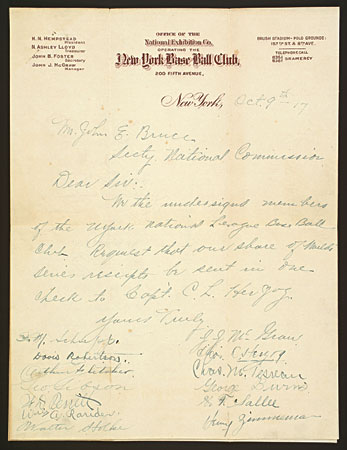 H. N. HEMPSTEAD
President
N. ASHLEY LLOYD
Treasurer
JOHN B. FOSTER
Secretary
JOHN J. McGRAW
Manager
OFFICE OF THE
National Exhibition Co.
OPERATING THE
New York Base Ball Club,
200 FIFTH AVENUE,
BRUSH STADIUM - POLO GROUNDS:
157TH ST. & 8TH AVE.
TELEPHONE CALL
GRAMERCY
New York, Oct. 9th 17
Mr. John E. Bruce
Secty. National Commission
Dear Sir:
We the undersigned members
of the N York National League Base Ball
Club Request that our share of Worlds
series receipts be sent in one
check to Capt. C. L. Herzog.
Yours Truly
J. J. McGraw
Chas. Herzog
Davis Robertson
Chas. M. Tesreau
Arthur Fletcher
Geo. Gibson
H. F. Sallee
Wm. A. Rariden
Walter Holke
Henry Zimmerman